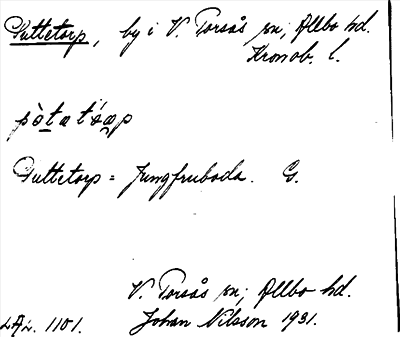 Puttetorp, by i V. Torsås sn; Allbo hd.
Kronob. l.
Puttetorp = Jungfruboda. G.
V. Torsås sn; Allbo hd.
LAL. 1101. Johan Nilsson 1931.